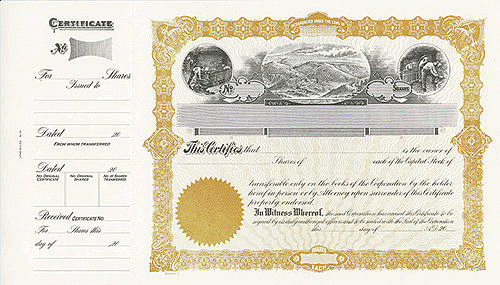 CERTIFICATE
No.
For Shares
Issued to
Dated 20
FROM WHOM TRANSFERRED
Dated 20
NO. ORIGINAL CERTIFICATE
NO. ORIGINAL SHARES
NO. OF SHARES TRANSFERRED
Received CERTIFICATE NO.
For Shares this
day of 20
INCORPORATED UNDER THE LAWS
No.
SHARES
This Certifies that is the owner of
Shares of each of the Capital Stock of
transferable only on the books of the Corporation by the holder
hereof in person or by Attorney upon surrender of this Certificate
properly endorsed.
In Witness Whereof, the said Corporation has caused this Certificate to be
signed by its duly authorized officers and to be sealed with the Seal of the Corporation
this day of A.D. 20
EACH